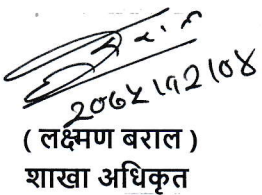 २०६५।१२।०४
( लक्ष्मण बराल )
शाखा अधिकृत